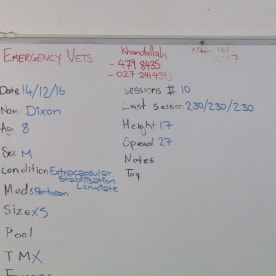 EMERGENCY VETS
Khandallah
- 479 8435
- 027 2414393
Date 14/12/16
Name Dixon
Age 8
Sex M
Condition Extracapsular
Stabilisation
Meds
Size XS
Pool
TMX
Sessions # 10
Last session 230/230/230
Height 17
Speed 27
Notes
Toy